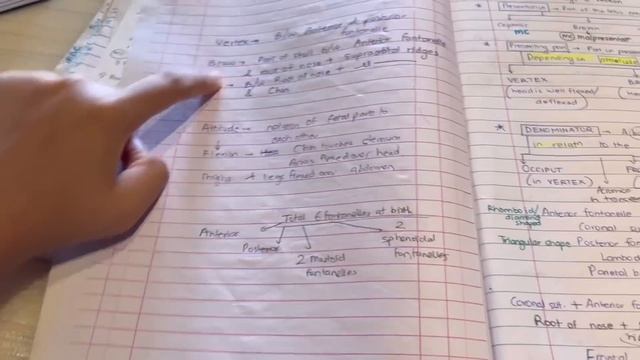 Vertex - B/w Anterior & posterior
fontanelle
Brow - Part of skull B/w Anterior fontanelle
& root of nose + supraorbital ridges
B/w Root of nose + " 
& Chin
Attitude - of fetal parts to
each other
Flexion - Chin touches sternum
Arms flexed over head
& Legs flexed over abdomen
Total 6 fontanelles at birth
Anterior
Posterior
2 mastoid
fontanelles
2
sphenoidal
fontanelles
Presentation - Part of the
Cephalic
MC
Breech
MC malpresentation
* Presenting part - Part of
Depending on
VERTEX
(head is well flexed/
deflexed)
* DENOMINATOR - A
in relatn to the
OCCIPUT
(in VERTEX)
in
Rhomboid/
diamond
shaped
Anterior fontanelle
Coronal
Triangular shape Posterior fon
Lambd
Parietal b
Coronal sut. + Anterior f
Root of nose + b